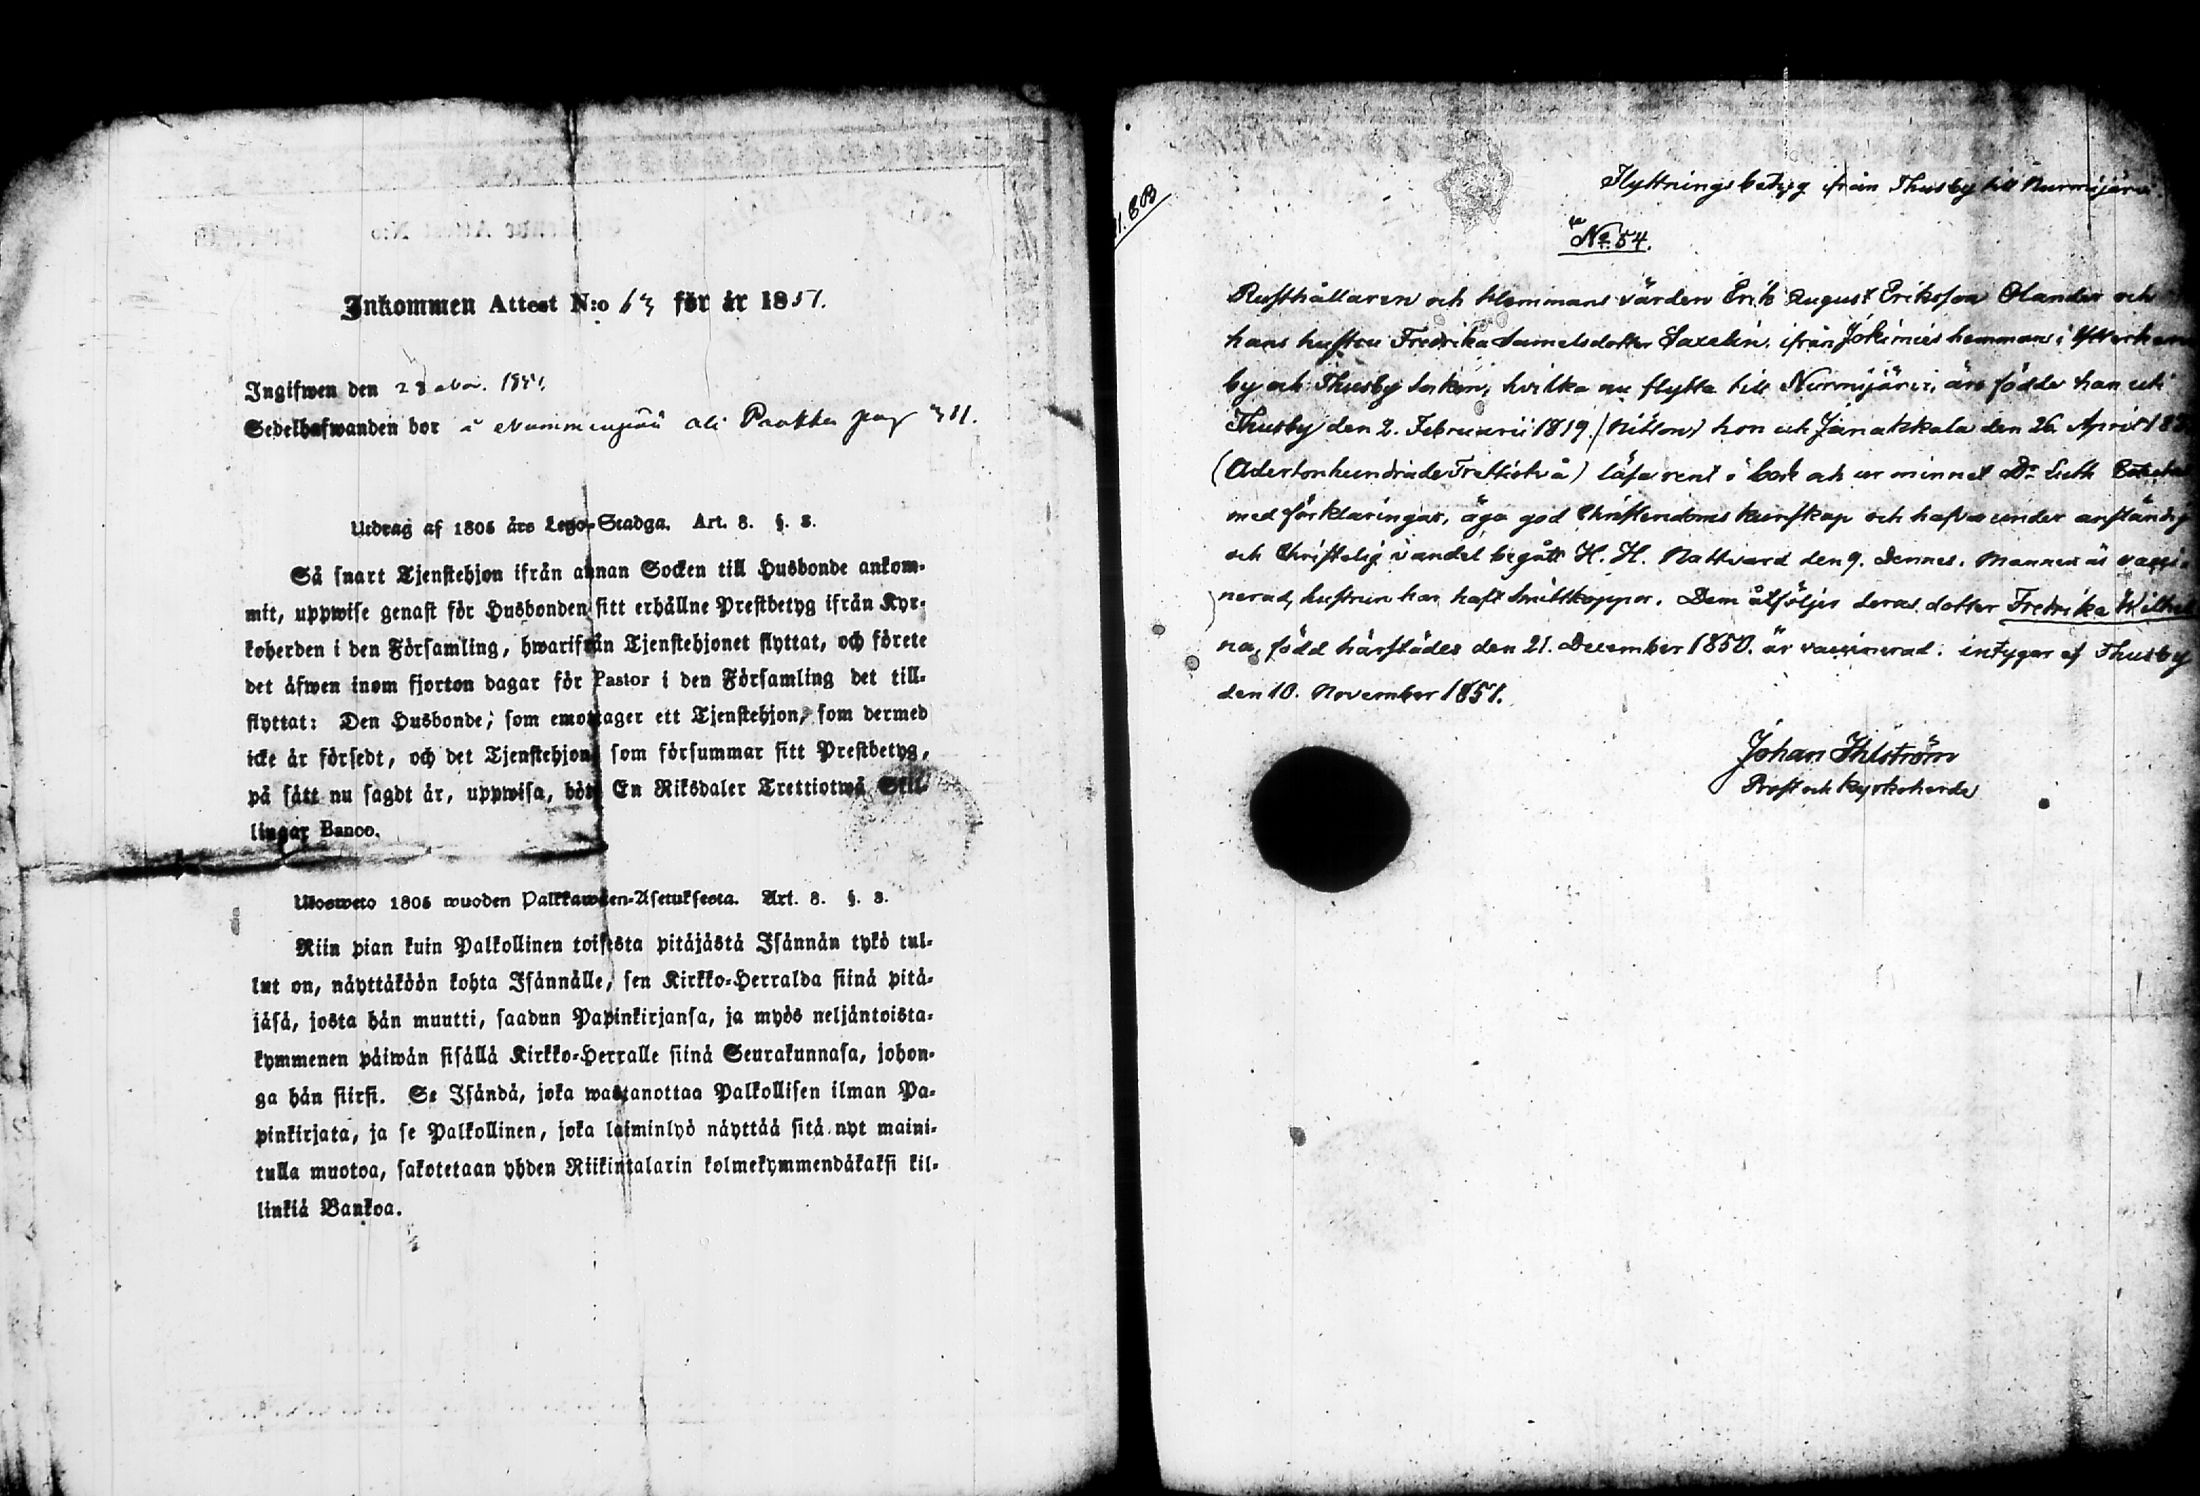 Inkommen Attest N:o 63 för år 1851.
Ingifwen den 28 Nov. 1851.
Sedelhafwanden bor i Nummenpää ali Paakka pag 311.
Utdrag af 1805 års Lego-Stadga. Art. 8. §. 8.
Så snart Tjenstehjon ifrån annan Socken till Husbonde ankom-
mit, uppwise genast för Husbonden sitt erhållne Prestbetyg ifrån Kyr-
koherden i den Församling, hwarifrån Tjenstehjonet flyttat, och förete
det äfwen inom fjorton dagar för Pastor i den Församling det till-
flyttat: Den Husbonde, som emottager ett Tjenstehjon, som dermed
icke är försedt, och det Tjenstehjon som försummar sitt Prestbetyg,
på sätt nu sagdt är, uppwisa, böte En Riksdaler Trettiotwå Skil-
lingar Banco.
Ulosweto 1805 wuoden Palkkawäen-Asetuksesta. Art. 8. §. 8.
Niin pian kuin Palkollinen toisesta pitäjästä Isännän tykö tul-
lut on, näyttäköön kohta Isännälle, sen Kirkko-Herralda siinä pitä-
jäsä, josta hän muutti, saadun Papinkirjansa, ja myös neljäntoista-
kymmenen päiwän sisällä Kirkko-Herralle siinä Seurakunnasa, johon-
ga hän siirsi. Se Isändä, joka wastanottaa Palkollisen ilman Pa-
pinkirjata, ja se Palkollinen, joka laiminlyö näyttää sitä nyt maini-
tulla muotoa, sakotetaan yhden Riikintalarin kolmekymmendäkaksi kil-
linkiä Bankoa.
Flyttningsbetyg ifrån Thusby till Nurmijärvi.
No 54.
Rusthållaren och Hemmans värden Erik August Eriksson Olander och
hans hustru Fredrika Samelsdotter Saxelin, ifrån Jokimies hemman i
by och Thusby Socken, hvilka nu flytta till Nurmijärvi, äro födde han uti
Thusby den 2. Februarii 1819. (Nitton) hon uti Janakkala den 26. April
(Adertonhundrade Trettiotvå) läsa rent i bok och ur minnet Dr. Luth
med förklaringar, äga god Christendoms kunskap och hafva under anständig
och Christelig vandel begått H. H. Nattvard den 9. dennes. Mannen är vacci-
nerad, hustrun har haft Smittkoppor. Dem åtföljer deras dotter Fredrika
na, född härstädes den 21. December 1850. är vaccinerad. intygar af Thusby
den 10. November 1851.
Johan Ihlström
Prost och Kyrkoherde